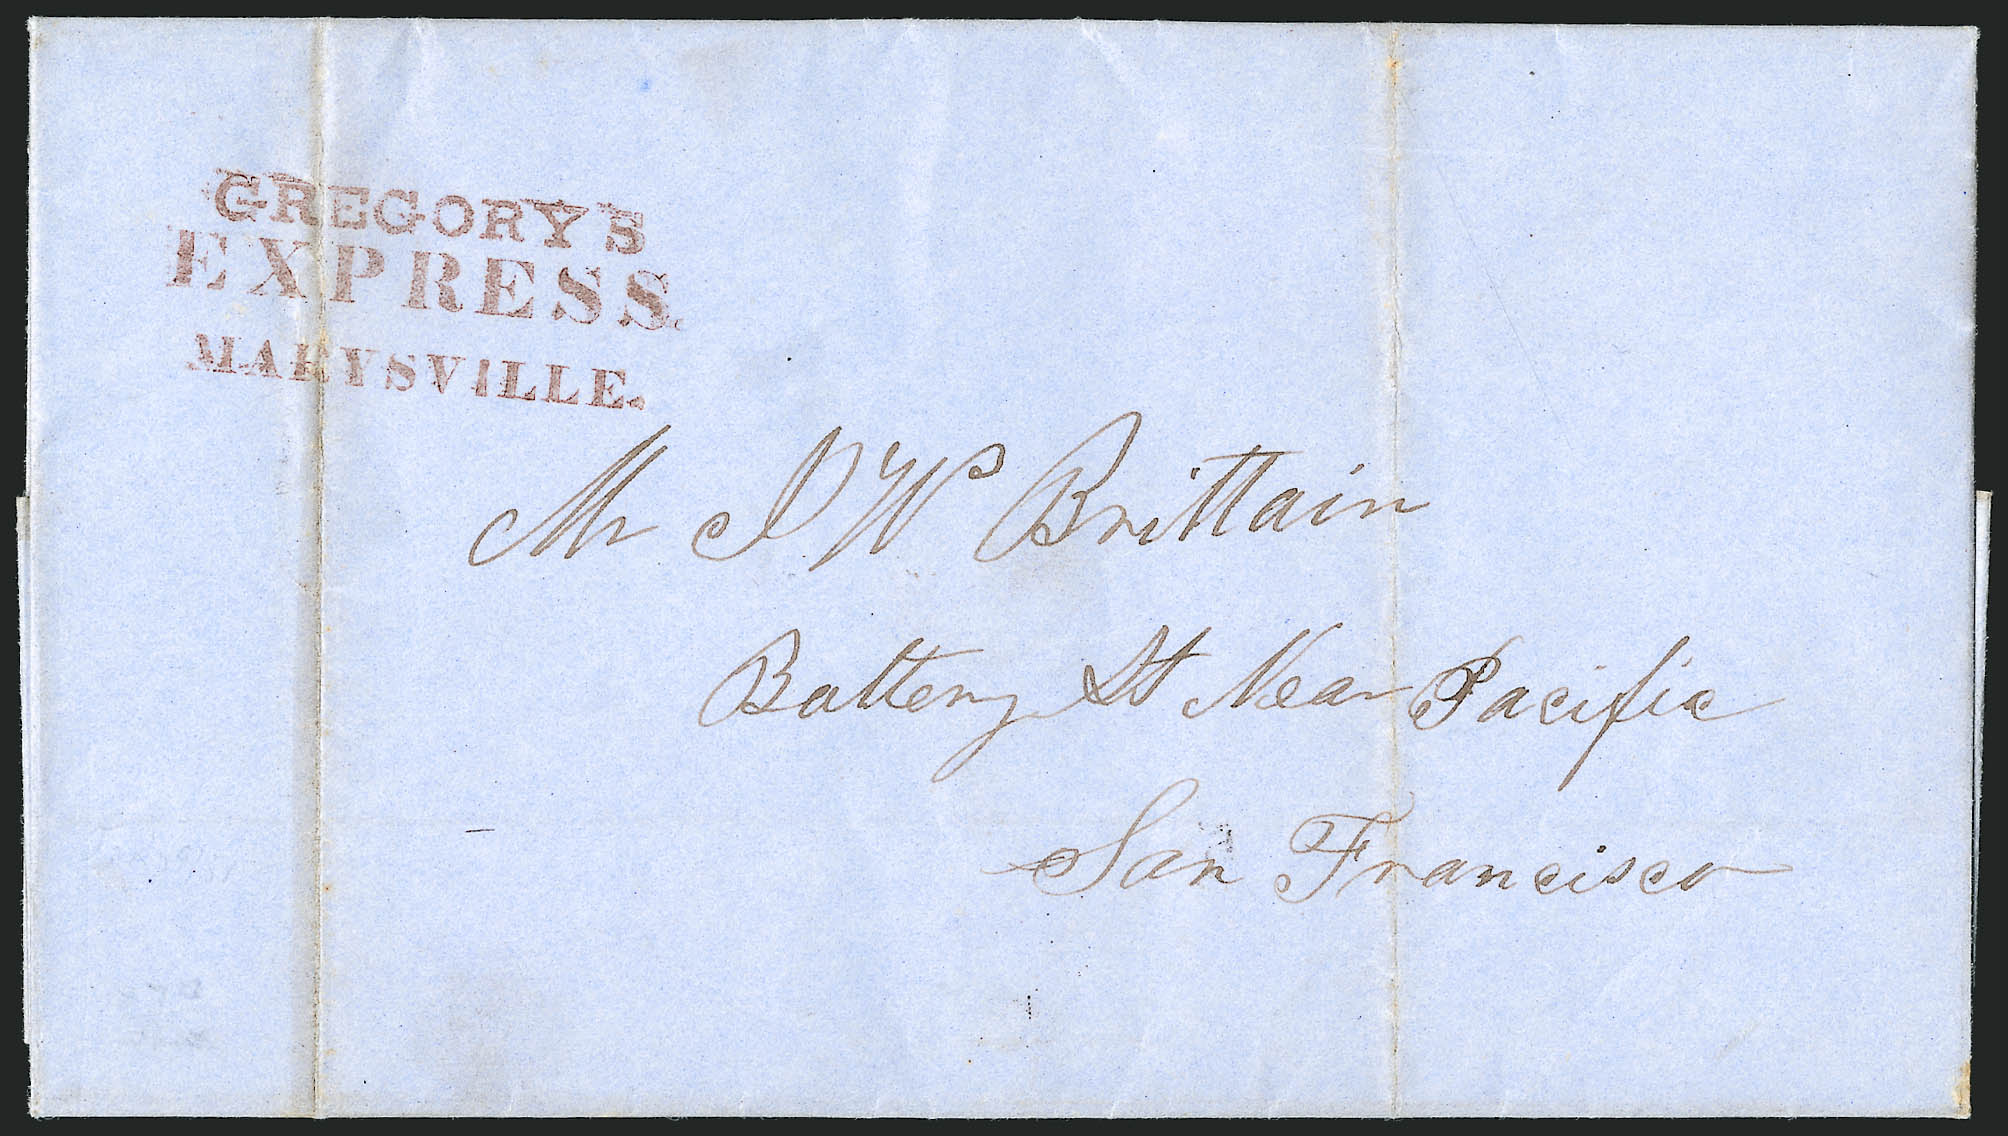 GREGORY'S
EXPRESS.
MARYSVILLE.
Mr J W Brittain
Battery St Near Pacific
San Francisco